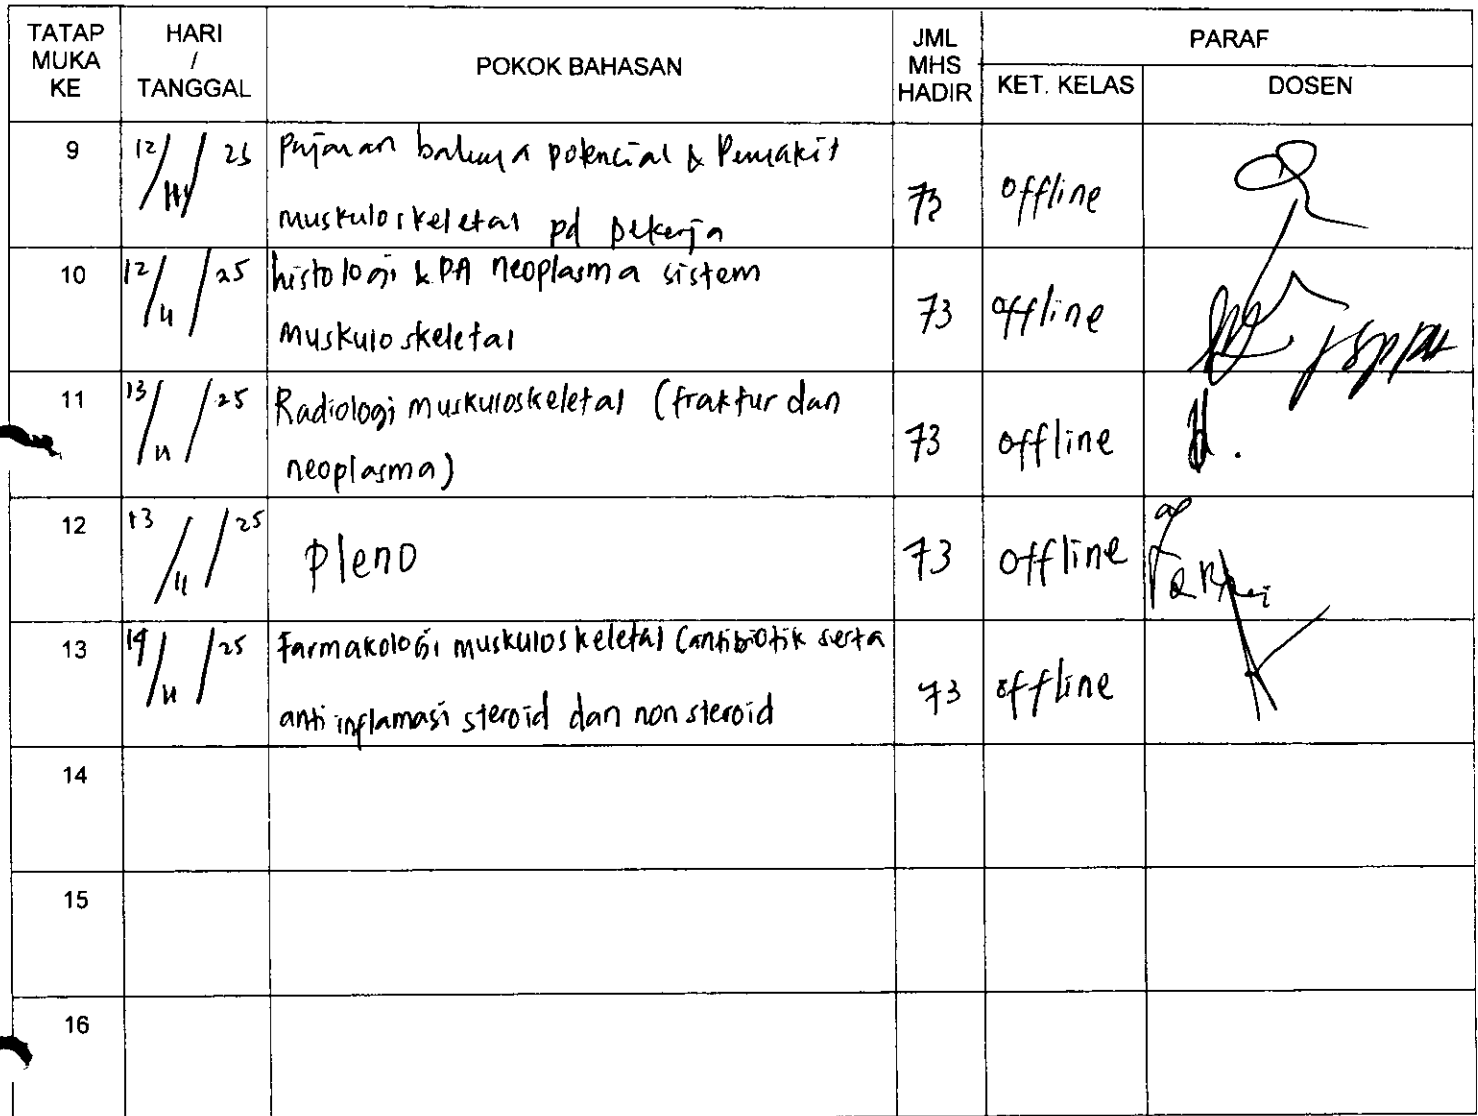 TATAP MUKA KE | HARI / TANGGAL | POKOK BAHASAN | JML MHS HADIR | PARAF
KET. KELAS | DOSEN
9 | 12/11/25 | Pajanan bahaya potencial & Penyakit
muskuloskeletal pd pekerja | 73 | offline
10 | 12/11/25 | histologi & PA neoplasma sistem
muskuloskeletal | 73 | offline
11 | 13/11/25 | Radiologi muskuloskeletal (fraktur dan
neoplasma) | 73 | offline
12 | 13/11/25 | Pleno | 73 | offline
13 | /11/25 | Farmakologi muskuloskeletal (antibiotik serta
anti inflamasi steroid dan non steroid | 73 | offline
14
15
16